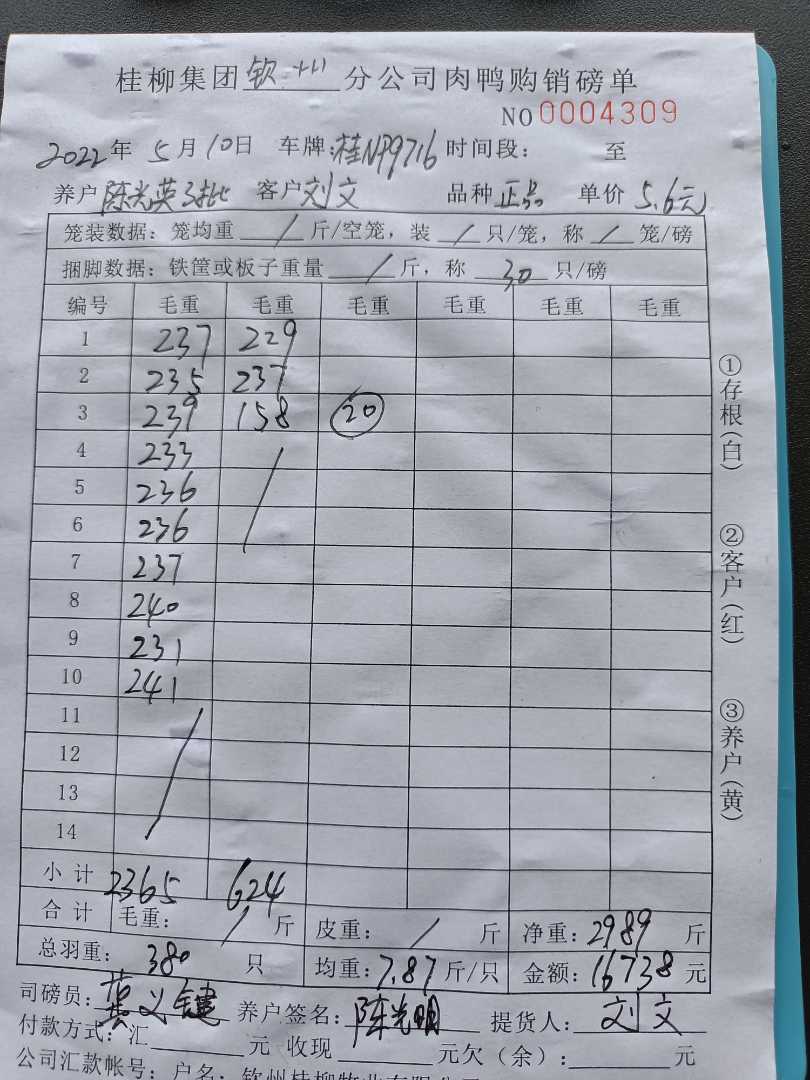 桂柳集团钦州分公司肉鸭购销磅单
NO 0004309
2022年5月10日 车牌:桂NP9716 时间段: 至
养户陈光英3批 客户刘文 品种正品 单价5.6元
笼装数据: 笼均重 / 斤/空笼, 装 / 只/笼, 称 / 笼/磅
捆脚数据: 铁筐或板子重量 / 斤, 称 30 只/磅
编号 毛重 毛重 毛重 毛重 毛重 毛重
1 237 229
2 235 237
3 239 158 20
4 233 /
5 236
6 236
7 237
8 240
9 231
10 241
11 /
12
13
14
小计 2365 624
合计 毛重: / 斤 皮重: / 斤 净重: 2989 斤
总羽重: 380 只 均重: 7.87 斤/只 金额: 16738 元
司磅员: 义键 养户签名: 陈光明 提货人: 刘文
付款方式: 汇 元 收现 元欠(余): 元
公司汇款帐号: 户名: 钦州桂柳牧业有限公司
①存根(白)
②客户(红)
③养户(黄)